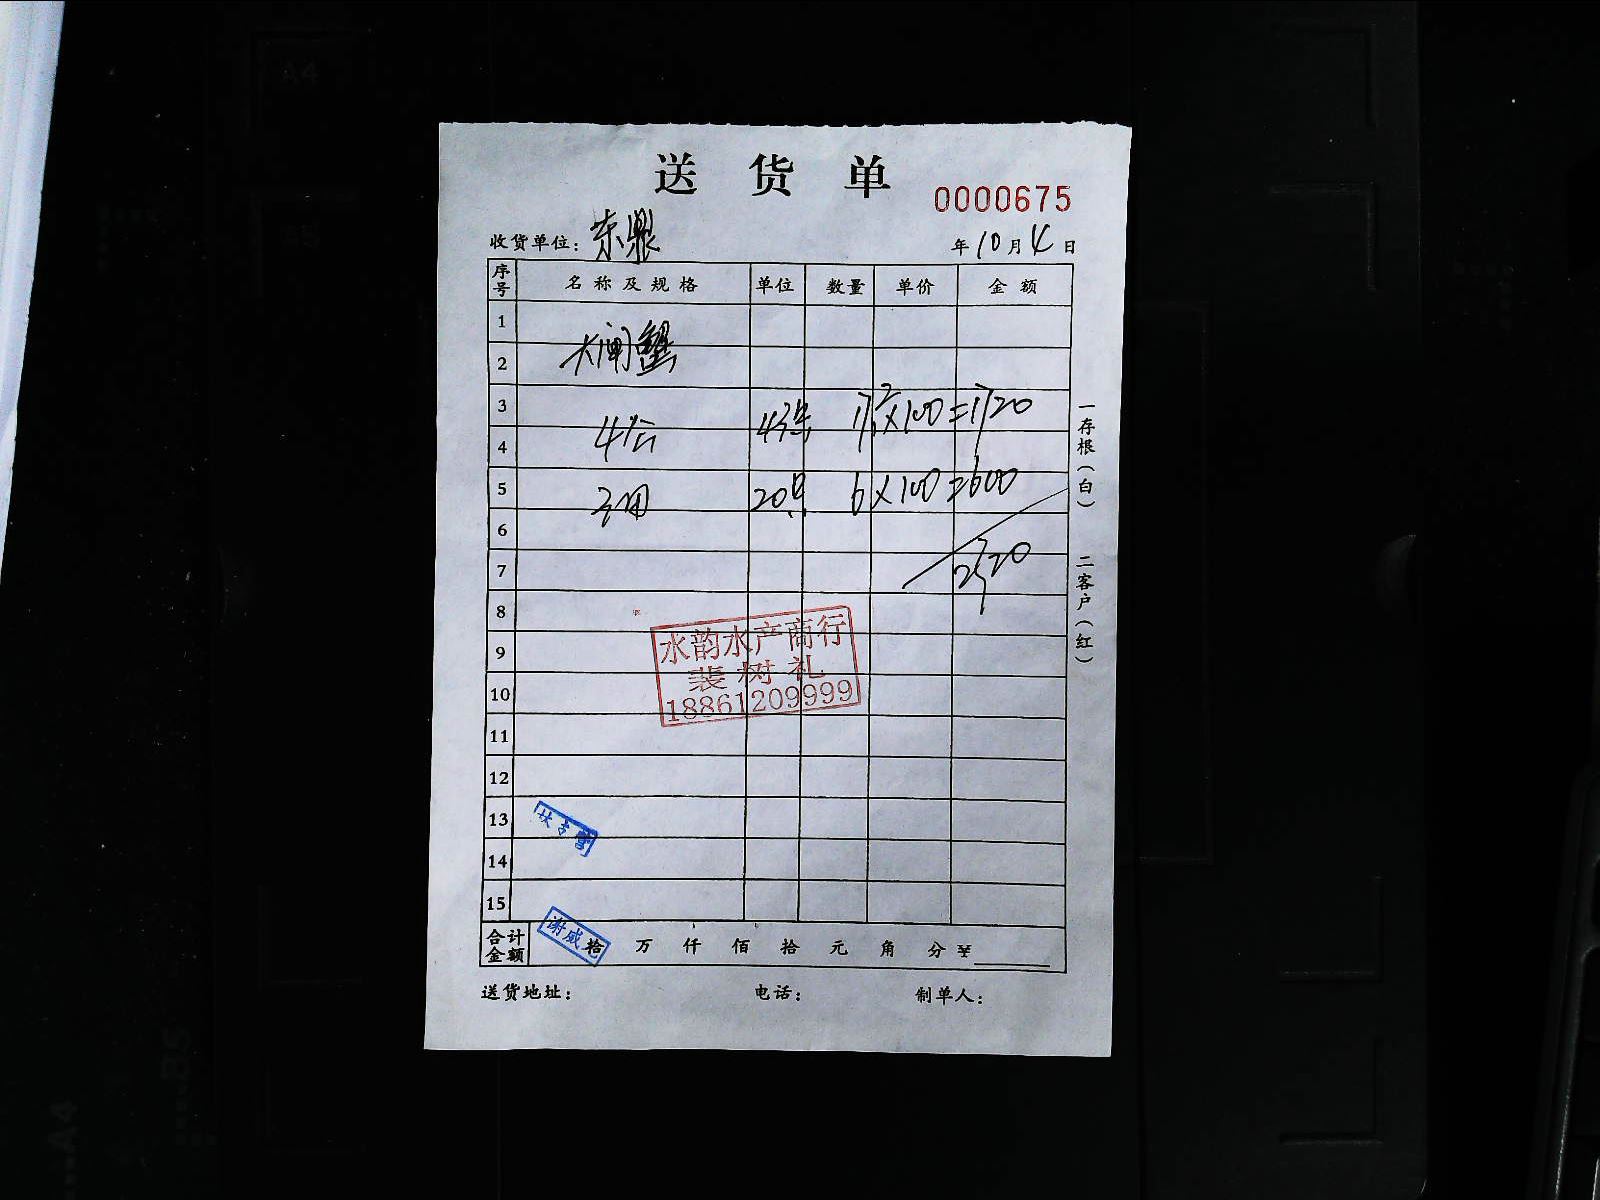 送货单
0000675
收货单位：东鼎 年10月4日
序号 名称及规格 单位 数量 单价 金额
1
2 大闸蟹
3
4 4公 43只 17.2×100=1720
5 20只 6×100=600
6
7 2320
8
水韵水产商行
9
裴树礼
10
18861209999
11
12
13
14
15
合计金额 谢威 拾 万 仟 佰 拾 元 角 分 ¥
送货地址： 电话： 制单人：
一存根（白） 二客户（红）
A4
B5
A4